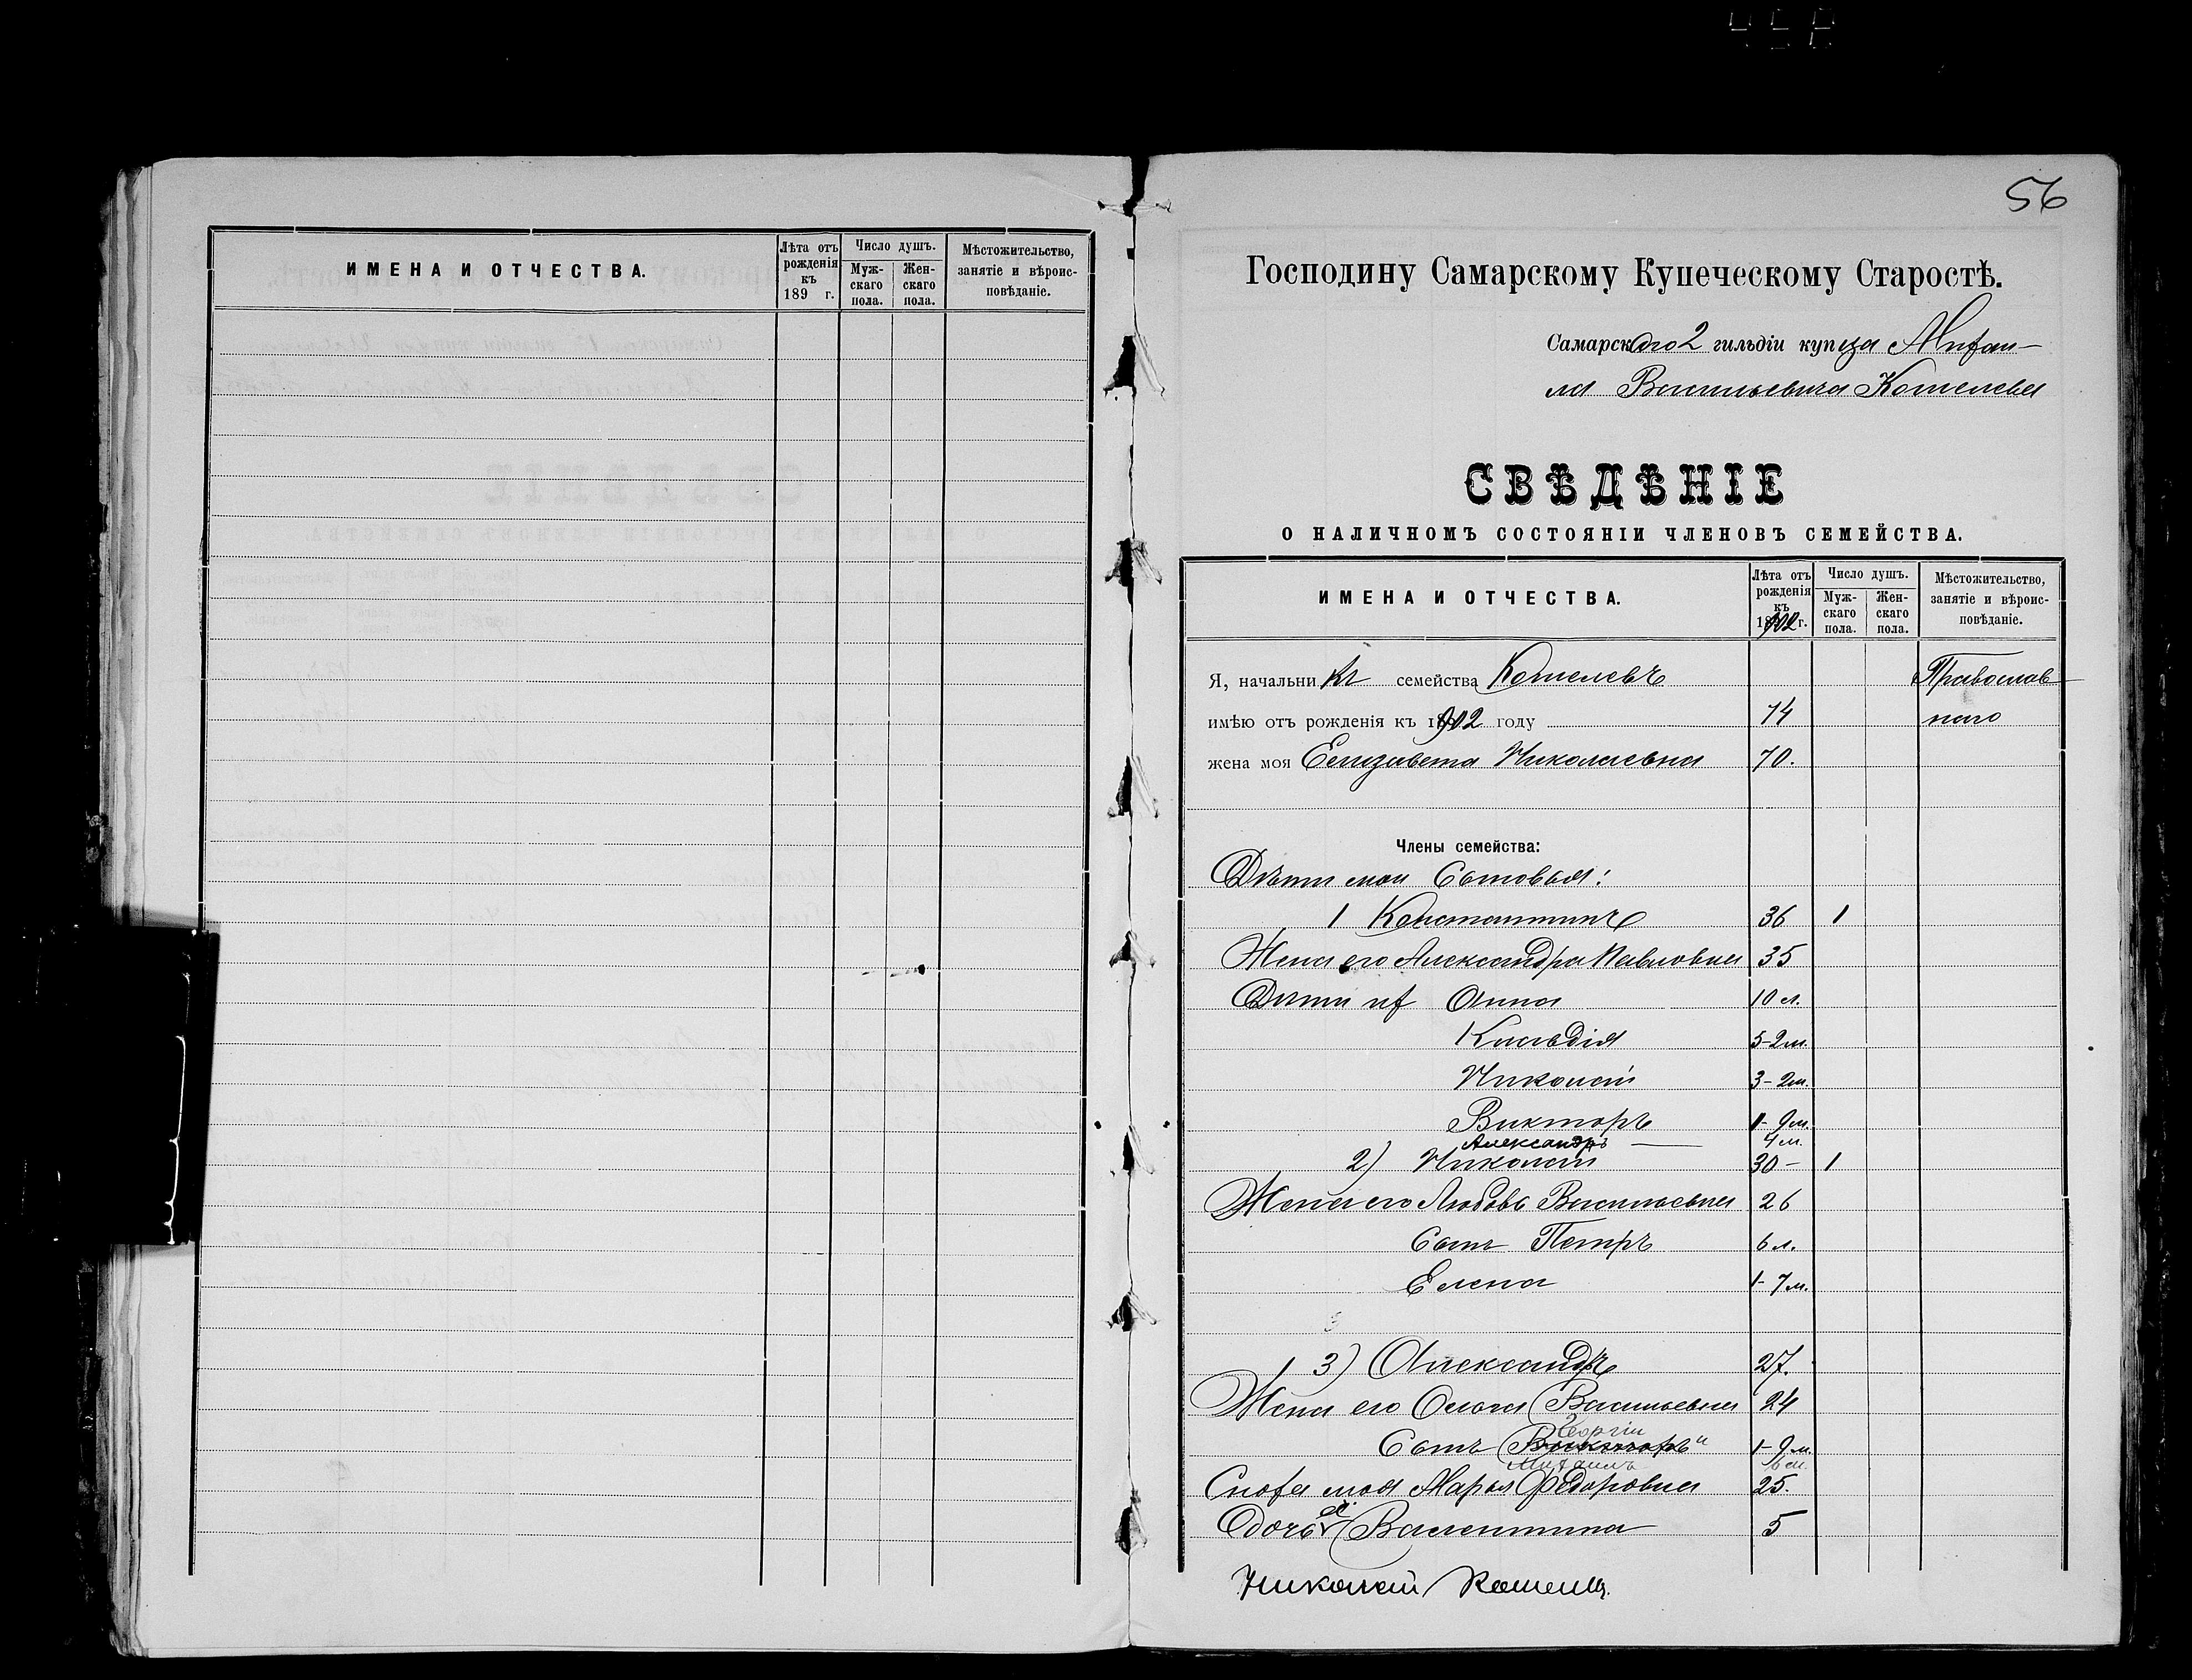 ИМЕНА И ОТЧЕСТВА.
Лѣта отъ рожденія къ 189 г.
Число душъ.
Мужскаго пола.
Женскаго пола.
Мѣстожительство, занятіе и вѣроисповѣданіе.
56
Господину Самарскому Купеческому Старостѣ.
Самарскаго 2 гильдіи купца Михаи-
ла Васильевича Кошелева
СВѢДѢНІЕ
О НАЛИЧНОМЪ СОСТОЯНІИ ЧЛЕНОВЪ СЕМЕЙСТВА.
ИМЕНА И ОТЧЕСТВА.
Лѣта отъ рожденія къ 1902 г.
Число душъ.
Мужскаго пола.
Женскаго пола.
Мѣстожительство, занятіе и вѣроисповѣданіе.
Я, начальникъ семейства Кошелевъ Православ
имѣю отъ рожденія къ 1902 году 74 наго
жена моя Елизавета Николаевна 70.
Члены семейства:
Дѣти мои Сыновья:
1 Константинъ 36 1
Жена его Александра Павловна 35
Дѣти их Анна 10 л.
Клавдія 5-2м.
Николай 3-2м.
Викторъ 1-9м.
Александръ — 4 м.
2) Николай 30 — 1
Жена его Любовь Васильевна 26
Сынъ Петръ 6 л.
Елена 1-7м.
3) Александръ 27.
Жена его Ольга Васильевна 24
Георгій
Сынъ Викторъ и 1-9м.
Михаилъ 6 м.
Сноха моя Марья Федоровна 25.
Дочь ея Валентина 5
Николай Кошелев